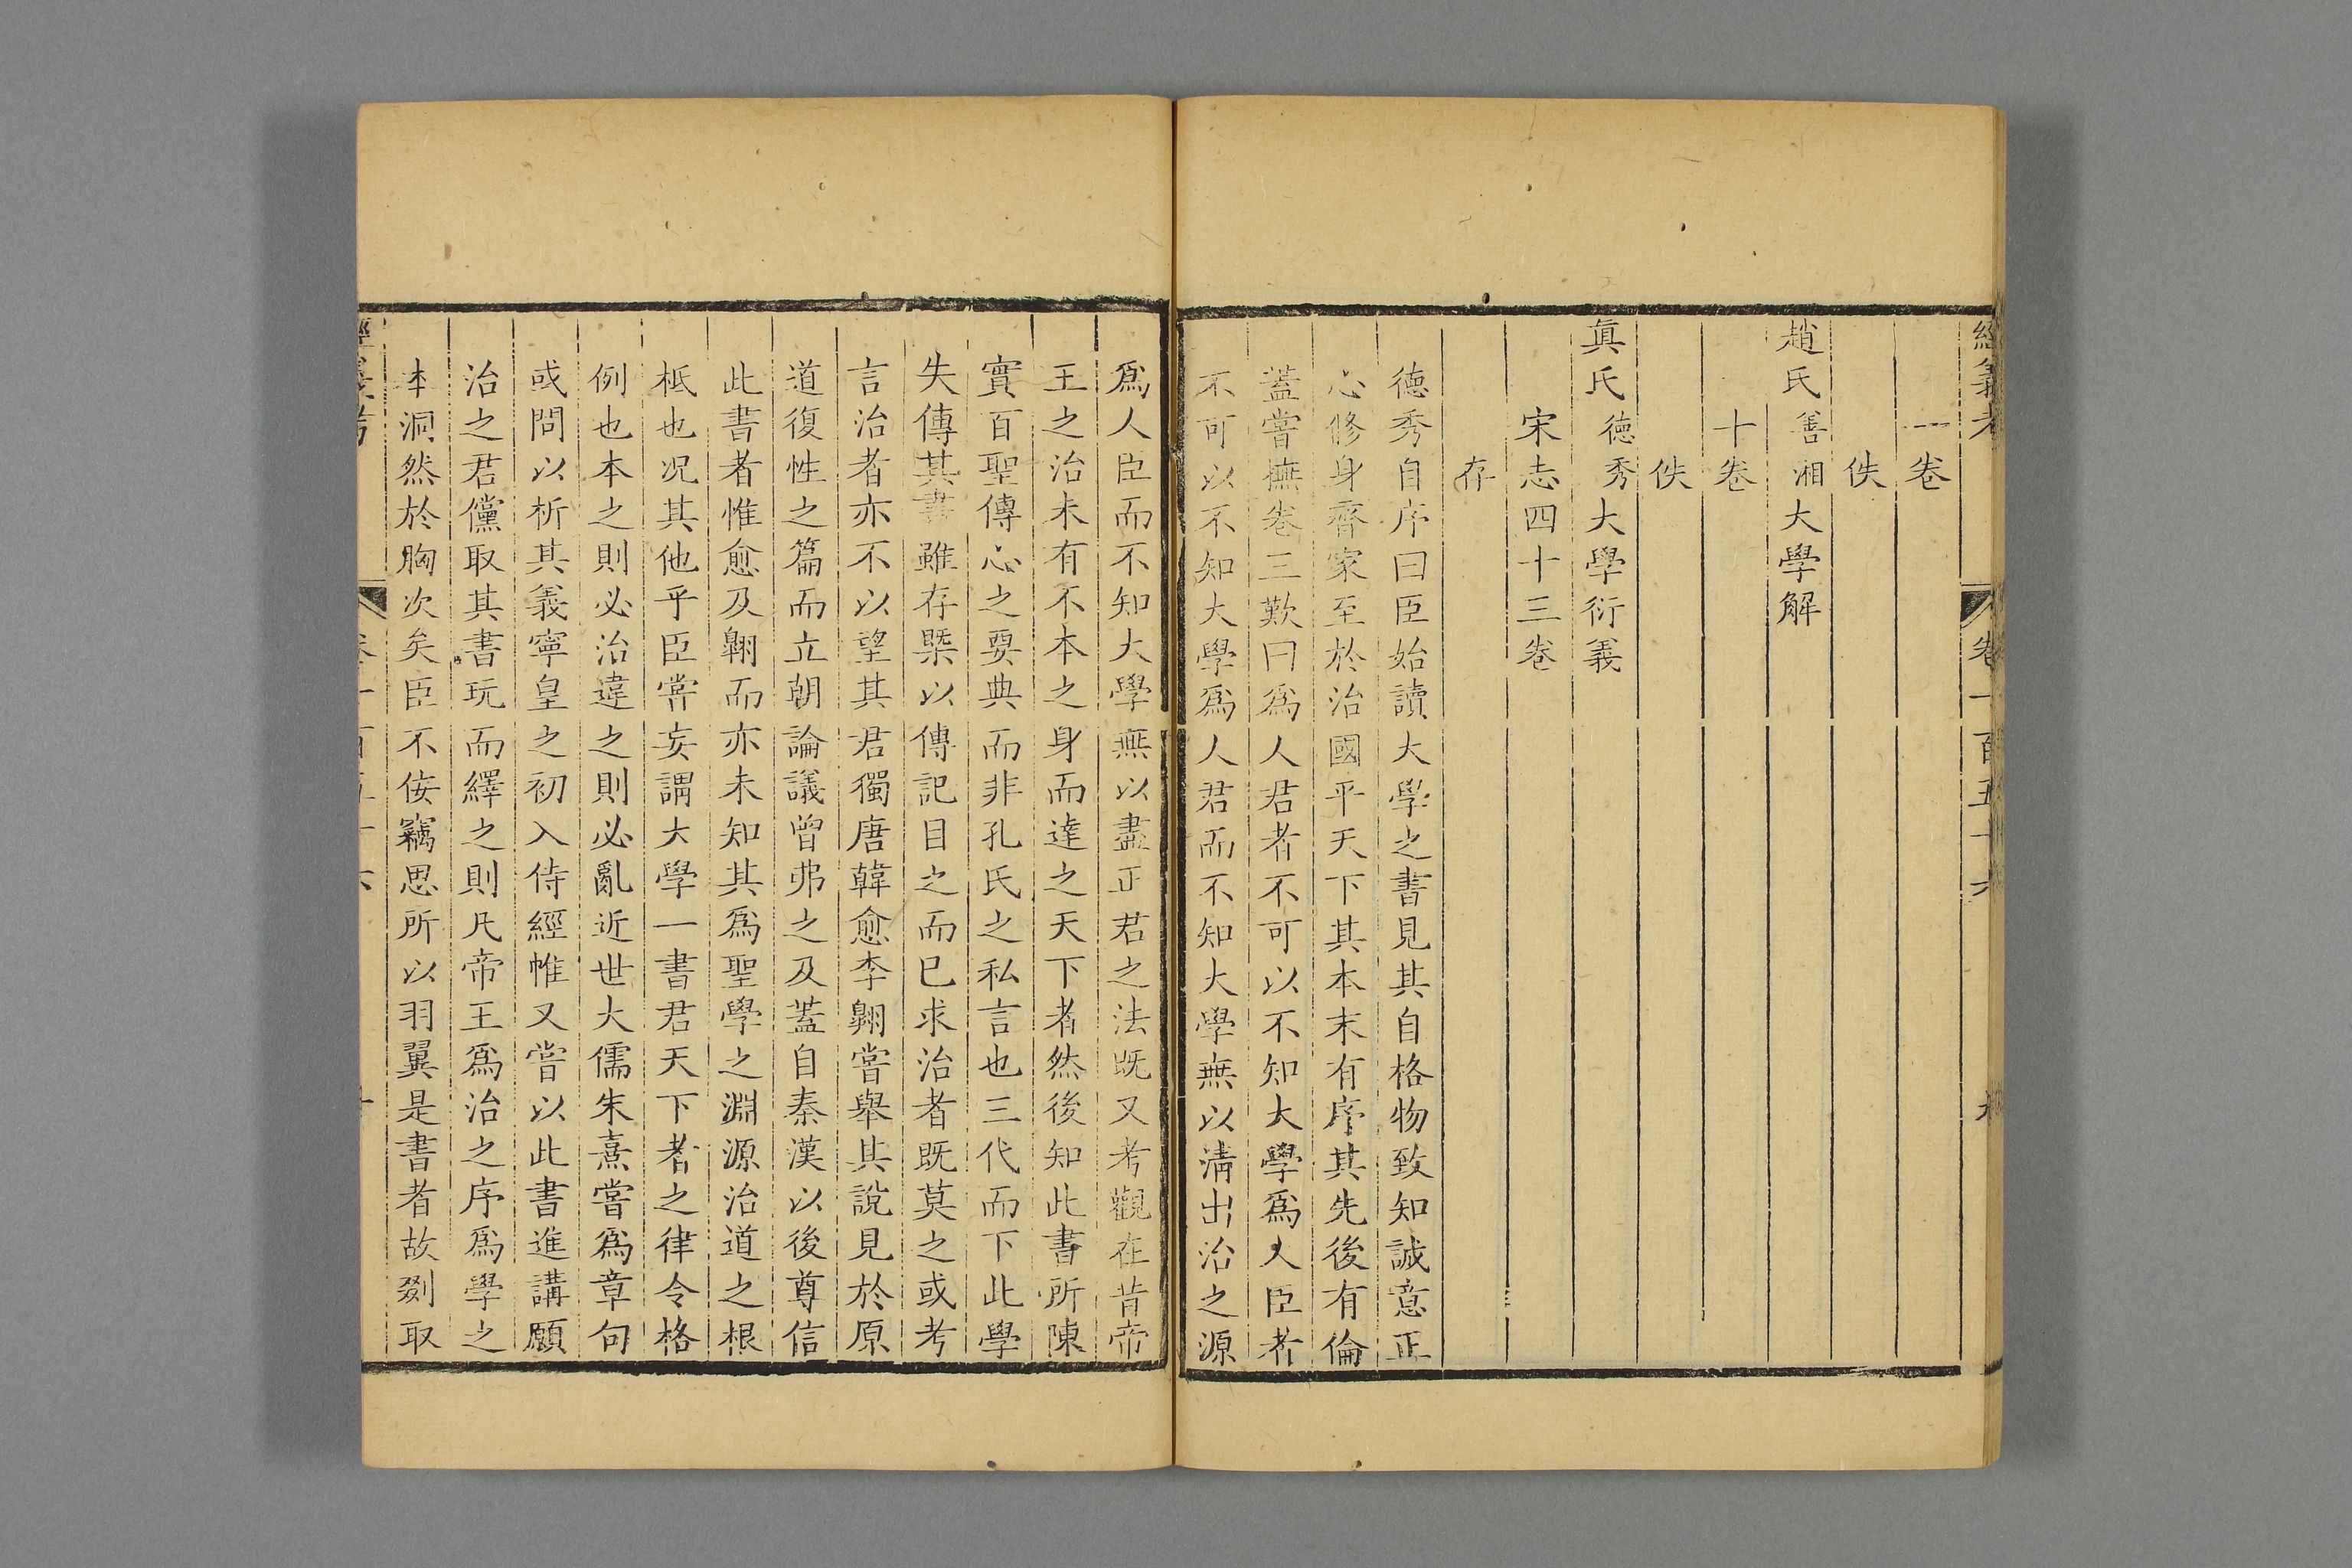 經義考 卷一百五十六
一卷
佚
趙氏善湘大學解
十卷
佚
真氏德秀大學衍義
宋志四十三卷
存
德秀自序曰臣始讀大學之書見其自格物致知誠意正
心修身齊家至於治國平天下其本末有序其先後有倫
蓋嘗撫卷三歎曰爲人君者不可以不知大學爲人臣者
不可以不知大學爲人君而不知大學無以淸出治之源
爲人臣而不知大學無以盡正君之法旣又考觀在昔帝
王之治未有不本之身而達之天下者然後知此書所陳
實百聖傳心之要典而非孔氏之私言也三代而下此學
失傳其書雖存槩以傳記目之而已求治者旣莫之或考
言治者亦不以望其君獨唐韓愈李翺嘗舉其說見於原
道復性之篇而立朝論議曾弗之及蓋自秦漢以後尊信
此書者惟愈及翺而亦未知其爲聖學之淵源治道之根
柢也况其他乎臣嘗妄謂大學一書君天下者之律令格
例也本之則必治違之則必亂近世大儒朱熹嘗爲章句
或問以析其義寧皇之初入侍經帷又嘗以此書進講願
治之君儻取其書玩而繹之則凡帝王爲治之序爲學之
本洞然於胸次矣臣不佞竊思所以羽翼是書者故剟取
經義考 卷一百五十六